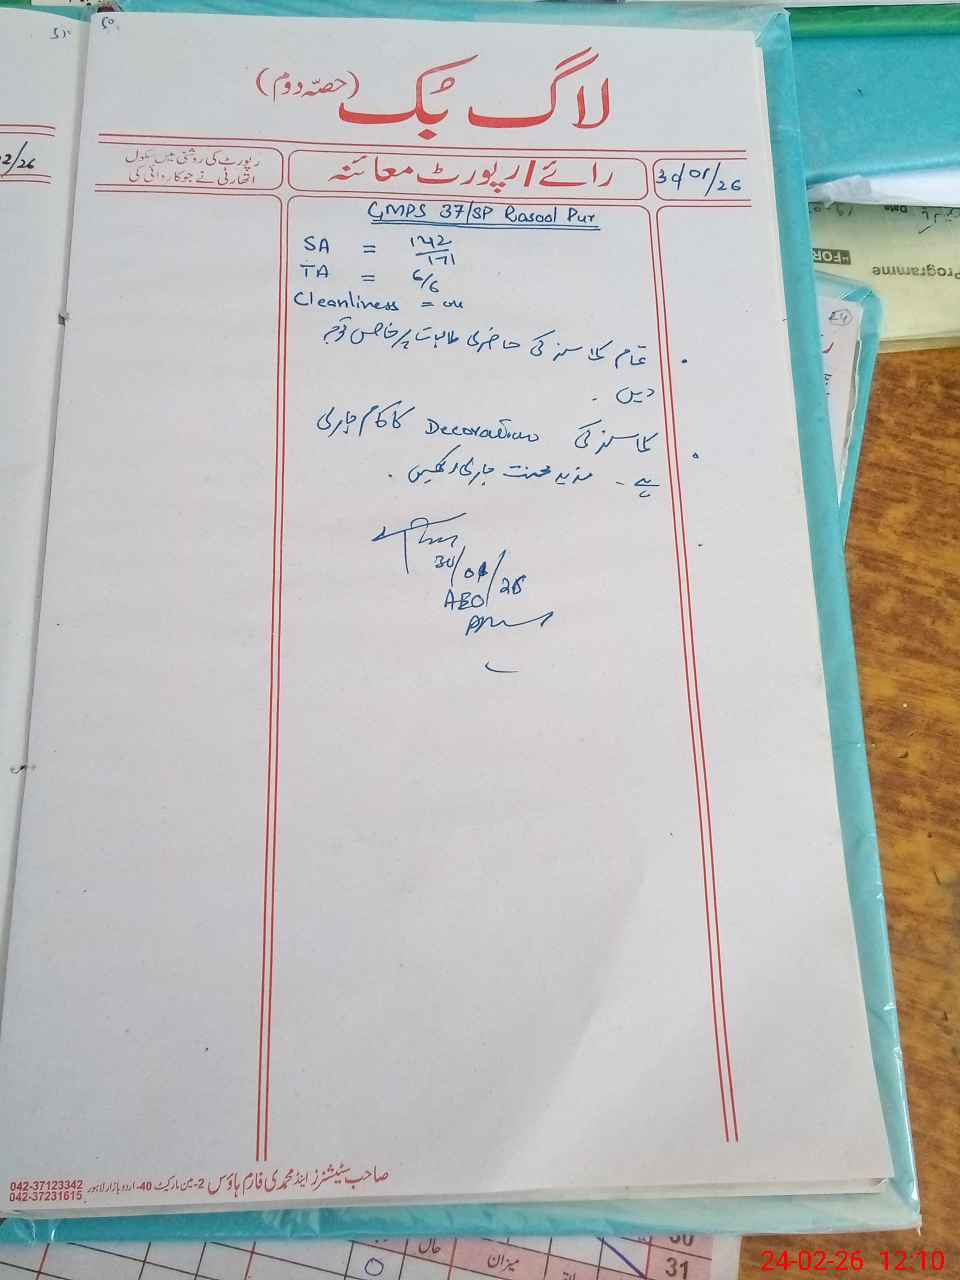 لاگ بک (حصّہ دوم)
30/01/26
رائے/رپورٹ معائنہ
رپورٹ کی روشنی میں سکول
اتھارٹی نے جو کاروائی کی
2/26
GMPS 37/SP Rasool Pur
SA = 142/171
TA = 6/6
Cleanliness = ok
تمام کلاسز کی حاضری طالبات پر خاص توجہ
دیں .
کلاسز کی Decoration کا کام جاری
ہے ۔ مزید محنت جاری رکھیں .
30/01/26
AEO
صاحب سٹیشنرز اینڈ محمدی فارم ہاؤس 2-مین مارکیٹ 40-اردو بازار لاہور
042-37123342
042-37231615
Programme
"FOR
24
میزان
حال
30
31
24-02-26 12:10